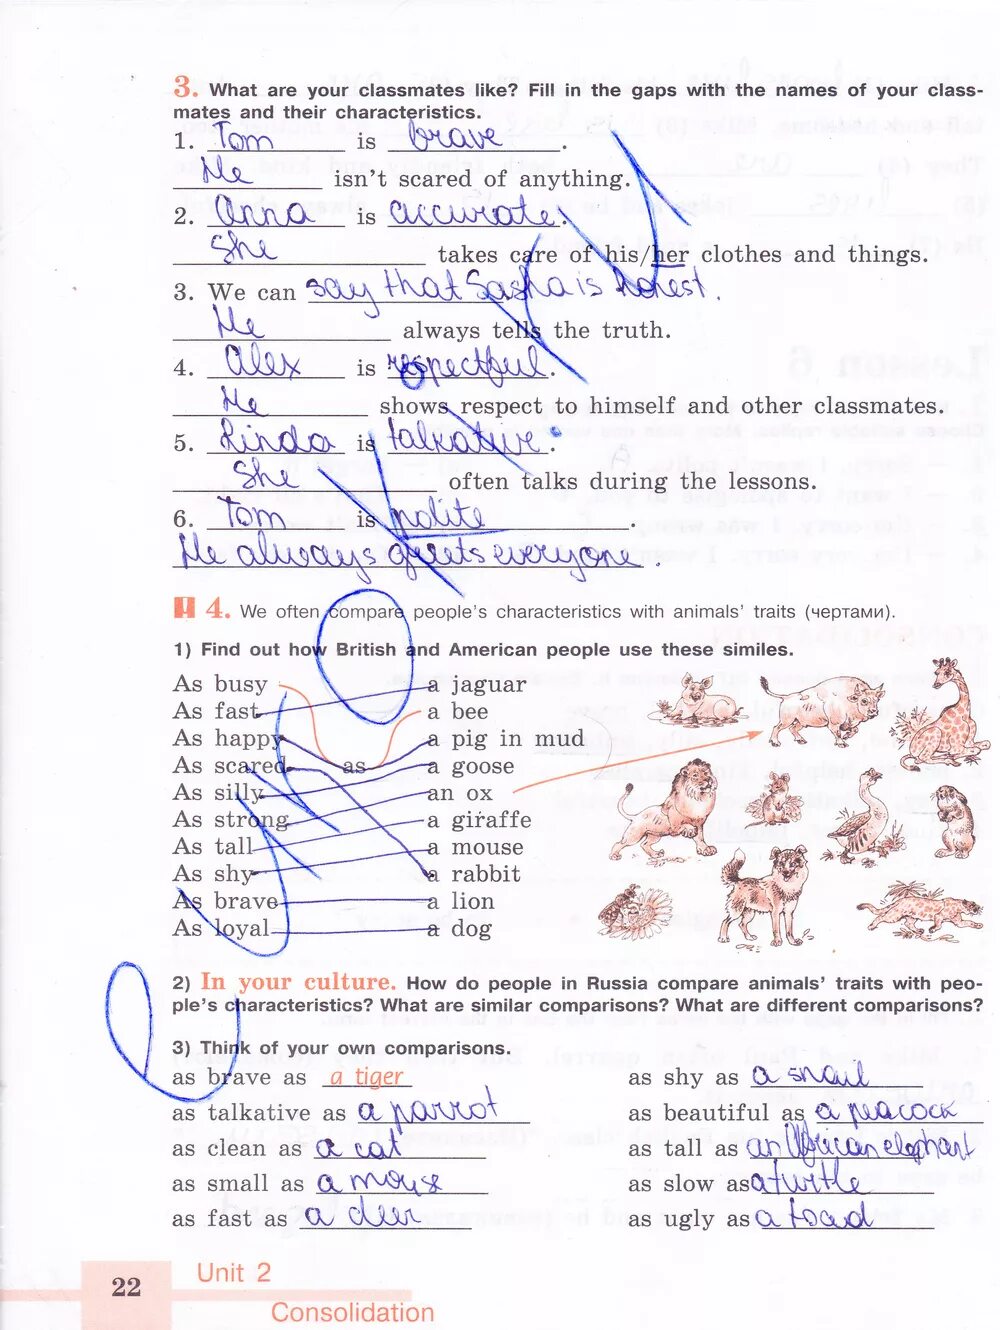 3. What are your classmates like? Fill in the gaps with the names of your class-
mates and their characteristics.
1. Tom is brave.
He isn't scared of anything.
2. Anna is accurate.
She takes care of his/her clothes and things.
3. We can say that Sasha is honest.
He always tells the truth.
4. Alex is respectful.
He shows respect to himself and other classmates.
5. Linda is talkative.
She often talks during the lessons.
6. Tom is polite
He always greets everyone.
4. We often compare people's characteristics with animals' traits (чертами).
1) Find out how British and American people use these similes.
As busy a jaguar
As fast a bee
As happy a pig in mud
As scared as a goose
As silly an ox
As strong a giraffe
As tall a mouse
As shy a rabbit
As brave a lion
As loyal a dog
2) In your culture. How do people in Russia compare animals' traits with peo-
ple's characteristics? What are similar comparisons? What are different comparisons?
3) Think of your own comparisons.
as brave as a tiger as shy as a snail
as talkative as a parrot as beautiful as a peacock
as clean as a cat as tall as an African elephant
as small as a mouse as slow as a turtle
as fast as a deer as ugly as a toad
22 Unit 2
Consolidation